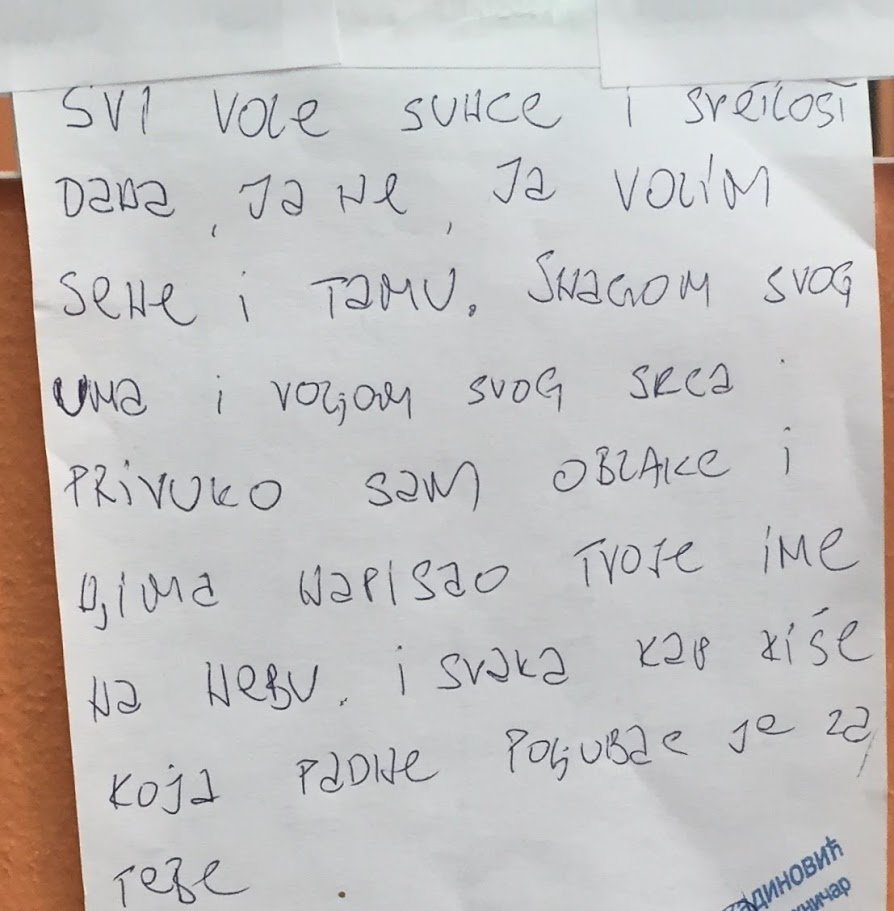 SVI VOLE SUNCE i SVETLOST
DANA, JA NE, JA VOLIM
SENE i TAMU. SNAGOM SVOG
UMA i VOLJOM SVOG SRCA
PRIVUKO SAM OBLAKE i
NJIMA NAPISAO TVOJE IME
NA NEBU. i SVAKA KAP KIŠE
KOJA PADNE POLJUBAC JE ZA
TEBE
ДИНОВИЋ
ничар